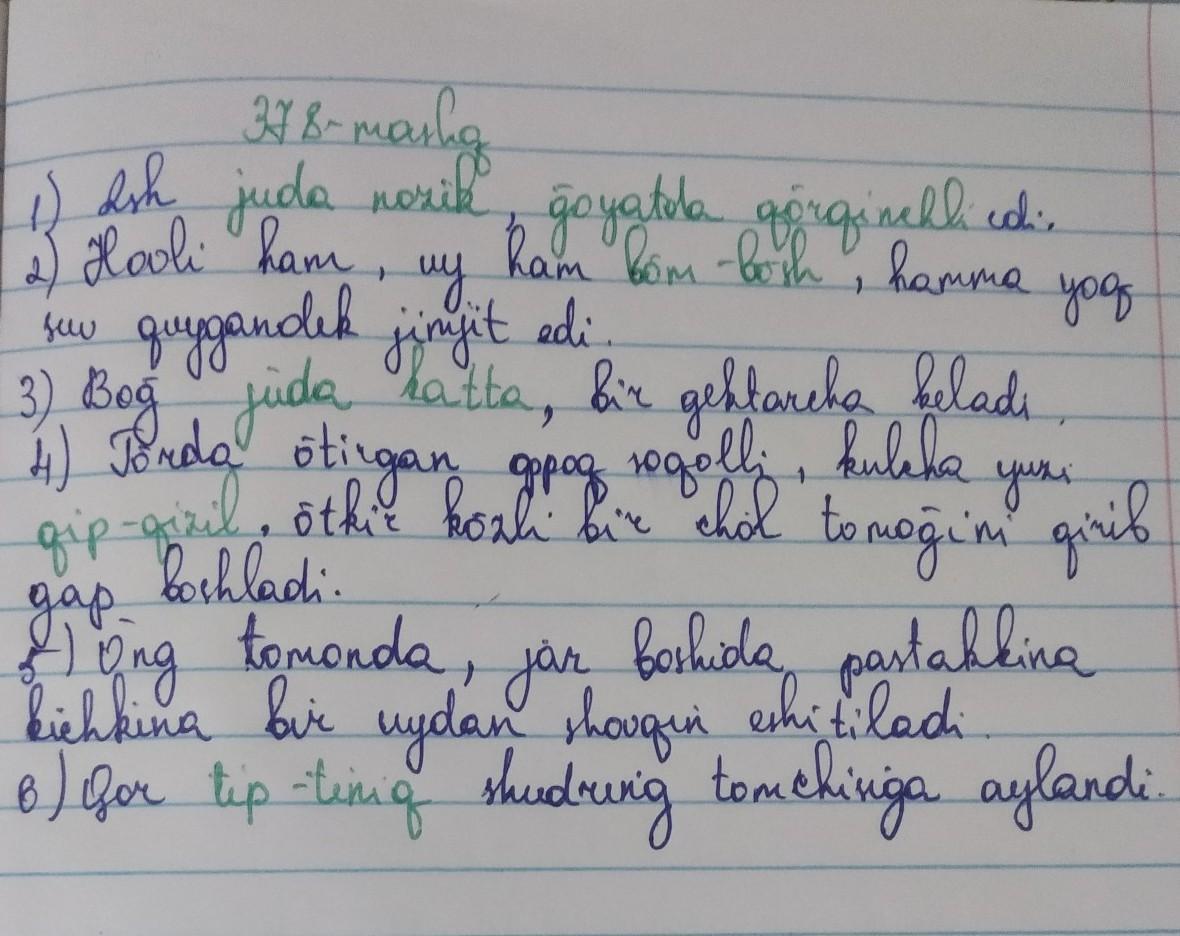 378-mashq
1) Ish juda nozik, ḡoyatda qōrqinchli edi.
2) Hovli ham, uy ham bōm-bōsh, hamma yoq
suv quygandek jimjit edi.
3) Boḡ juda katta, bir gektarcha keladi.
4) Tōrda ōtirgan oppoq soqolli, kulcha yuzi
qip-qizil, ōtkir kōzli bir chōl tomoḡini qirib
gap boshladi.
5) Ōng tomonda, jar boshida pastakkina
kichkina bir uydan shovqin eshitiladi.
6) Qor tip-tiniq shudring tomchisiga aylandi.